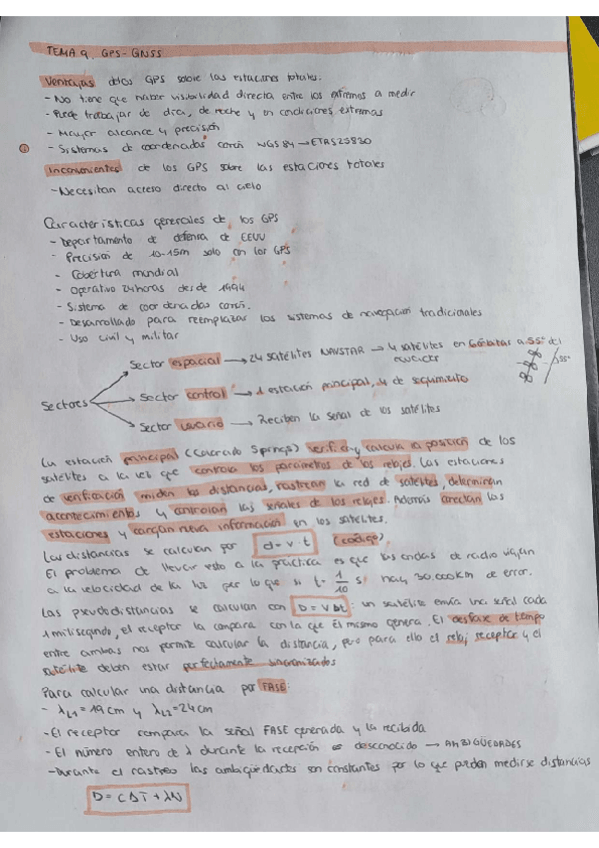 TEMA 9. GPS-GNSS
Ventajas de los GPS sobre las estaciones totales.
- No tiene que haber visibilidad directa entre los extremos a medir
- Puede trabajar de día, de noche y en condiciones extremas
- Mayor alcance y precisión
- Sistemas de coordenadas común WGS84 → ETRS25830
Inconvenientes de los GPS sobre las estaciones totales
- Necesitan acceso directo al cielo
Características generales de los GPS
- Departamento de defensa de EEUU
- Precisión de 10-15m solo con los GPS
- Cobertura mundial
- Operativo 24horas desde 1994
- Sistema de coordenadas común.
- Desarrollado para reemplazar los sistemas de navegación tradicionales
- Uso civil y militar
Sector espacial → 24 satélites NAVSTAR → 4 satélites en 6 órbitas a 55º del
ecuador
55º
Sectores
Sector control → 1 estación principal, 4 de seguimiento
Sector usuario → Reciben la señal de los satélites
La estación principal (Colorado Springs) verifica y calcula la posición de los
satélites a la vez que controla los parámetros de los relojes. Las estaciones
de verificación miden las distancias, rastrean la red de satélites, determinan
acontecimientos y controlan las señales de los relojes. Además afectan las
estaciones y cargan nueva información en los satélites.
Las distancias se calculan por d = v · t (código)
El problema de llevar esto a la práctica es que las ondas de radio viajan
a la velocidad de la luz por lo que si t = 1/10 s, hay 30.000km de error.
Las pseudodistancias se calculan con D = V Δt: un satélite envía una señal cada
1 milisegundo, el receptor la compara con la que él mismo genera. El desfase de tiempo
entre ambas nos permite calcular la distancia, pero para ello el reloj receptor y el
satélite deben estar perfectamente sincronizados
Para calcular una distancia por FASE:
- λL1 = 19cm y λL2 = 24cm
- El receptor compara la señal FASE generada y la recibida
- El número entero de λ durante la recepción es desconocido → AMBIGÜEDADES
- Durante el rastreo las ambigüedades son constantes por lo que pueden medirse distancias
D = CΔT + λN